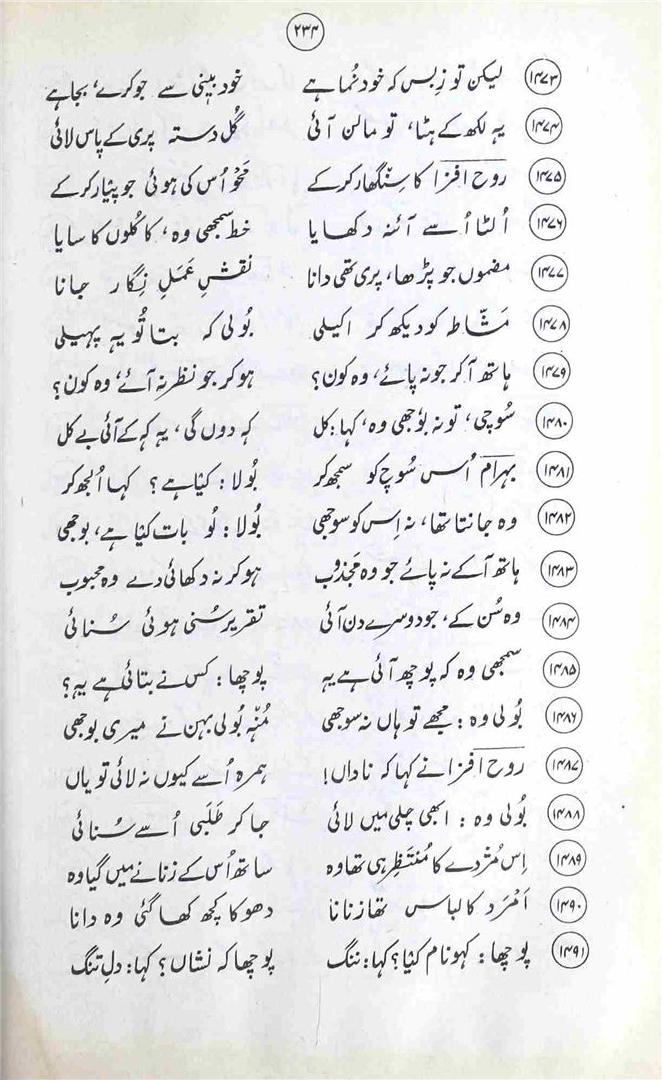 ۲۳۴
۱۴۷۳ لیکن تو زِبس کہ خود نُما ہے خود بینی سے جو کرے، بجا ہے
۱۴۷۴ یہ لکھ کے ہٹا، تو مالن آئی گُل دستہ پری کے پاس لائی
۱۴۷۵ روح افزا کا سِنگھار کر کے مَحْو اُس کی ہوئی جو پیار کر کے
۱۴۷۶ اُلٹا اُسے آئنہ دکھایا خط سمجھی وہ، کاکُلوں کا سایا
۱۴۷۷ مضموں جو پڑھا، پری تھی دانا نقشِ عَمَلِ نِگار جانا
۱۴۷۸ مَشّاطہ کو دیکھ کر اکیلی بُولی کہ بتا تُو یہ پہیلی
۱۴۷۹ ہاتھ آ کر جو نہ پائے، وہ کون؟ ہو کر جو نظر نہ آئے، وہ کون؟
۱۴۸۰ سُوچی، تو نہ بُوجھی وہ، کہا: کل کہہ دوں گی، یہ کہہ کے آئی بے کل
۱۴۸۱ بہرام اُس سُوچ کو سمجھ کر بُولا: کیٔا ہے؟ کہا اُلجھ کر
۱۴۸۲ وہ جانتا تھا، نہ اِس کو سوجھی بُولا: لُو بات کیٔا ہے، بوجھی
۱۴۸۳ ہاتھ آ کے نہ پائے جو وہ مَجْذوب ہو کر نہ دکھائی دے وہ محبوب
۱۴۸۴ وہ سُن کے، جو دوسرے دن آئی تقریر سُنی ہوئی سُنائی
۱۴۸۵ سمجھی وہ کہ پوچھ آئی ہے یہ پوچھا: کس نے بتائی ہے یہ؟
۱۴۸۶ بُولی وہ: مجھے تو ہاں نہ سوجھی مُنْہ بُولی بہن نے میری بوجھی
۱۴۸۷ روح افزا نے کہا کہ ناداں! ہمرہ اُسے کیوں نہ لائی تو یاں
۱۴۸۸ بُولی وہ: ابھی چلی میں لائی جا کر طَلَبی اُسے سُنائی
۱۴۸۹ اِس مُژدے کا مُنتَظِر ہی تھا وہ ساتھ اُس کے زنانے میں گیا وہ
۱۴۹۰ اَمْرَد کا لباس تھا زنانا دھوکا کچھ کھا گئی وہ دانا
۱۴۹۱ پوچھا: کہو نام کیٔا؟ کہا: ننگ پوچھا کہ نشاں؟ کہا: دلِ تنگ